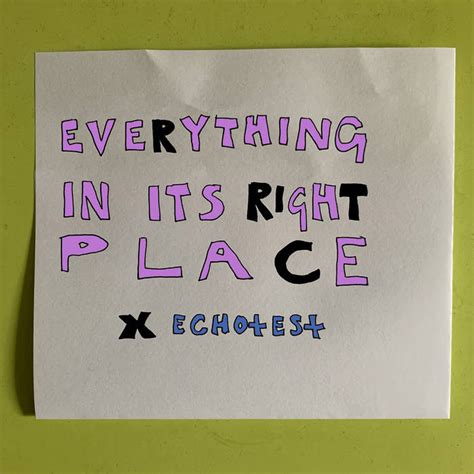 EVERYTHING
IN ITS RIGHT
PLACE
X ECHOTEST